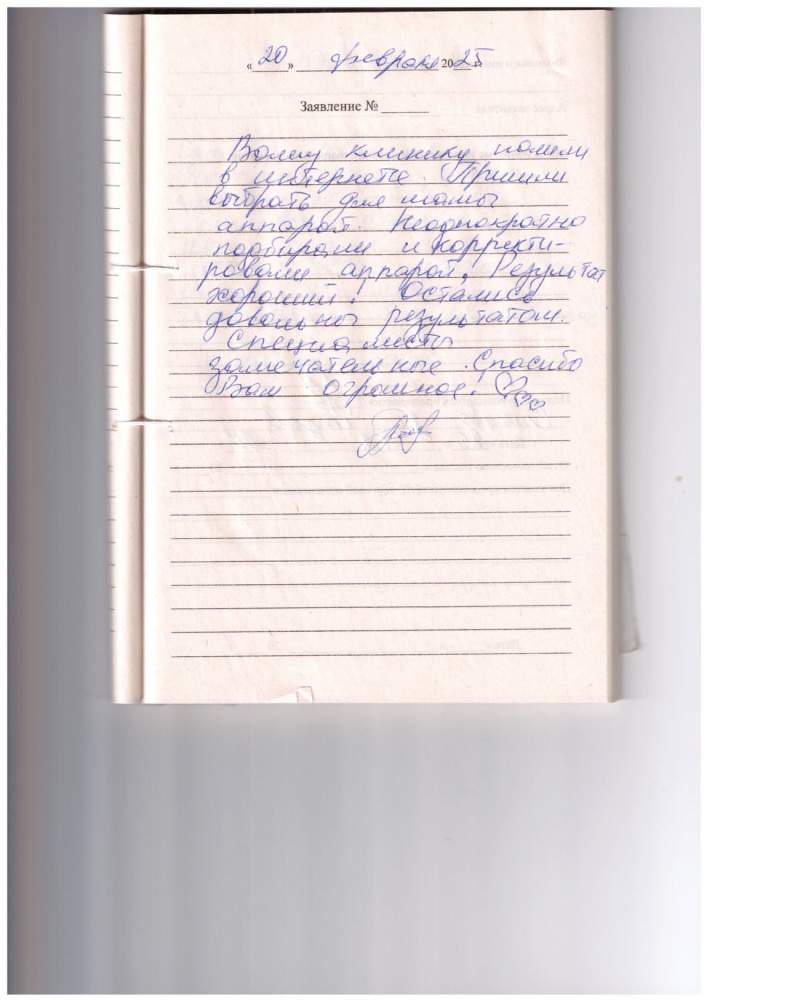 «20» февраля 2025 г.
Заявление №
Вашу клинику нашли
в интернете. Пришли
выбрать для мамы
аппарат. Неоднократно
подбирали и корректи-
ровали аппарат. Результат
хороший! Остались
довольны результатом.
Специалисты
замечательные. Спасибо
Вам огромное!